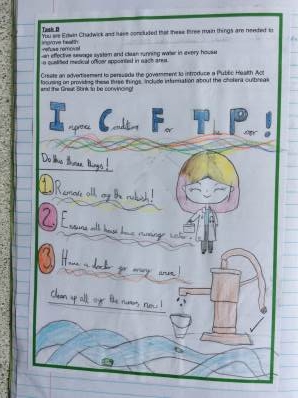 Task B
You are Edwin Chadwick and have concluded that these three main things are needed to
improve health:
-refuse removal
-an effective sewage system and clean running water in every house
-a qualified medical officer appointed in each area.
Create an advertisement to persuade the government to introduce a Public Health Act
focusing on providing these three things. Include information about the cholera outbreak
and the Great Stink to be convincing!
Improve Conditions For The Poor!
Do this three things!
1 Remove all of the rubish!
2. Ensure all houses have running water.
3 Have a doctor for every area!
Clean up all of the rivers now!